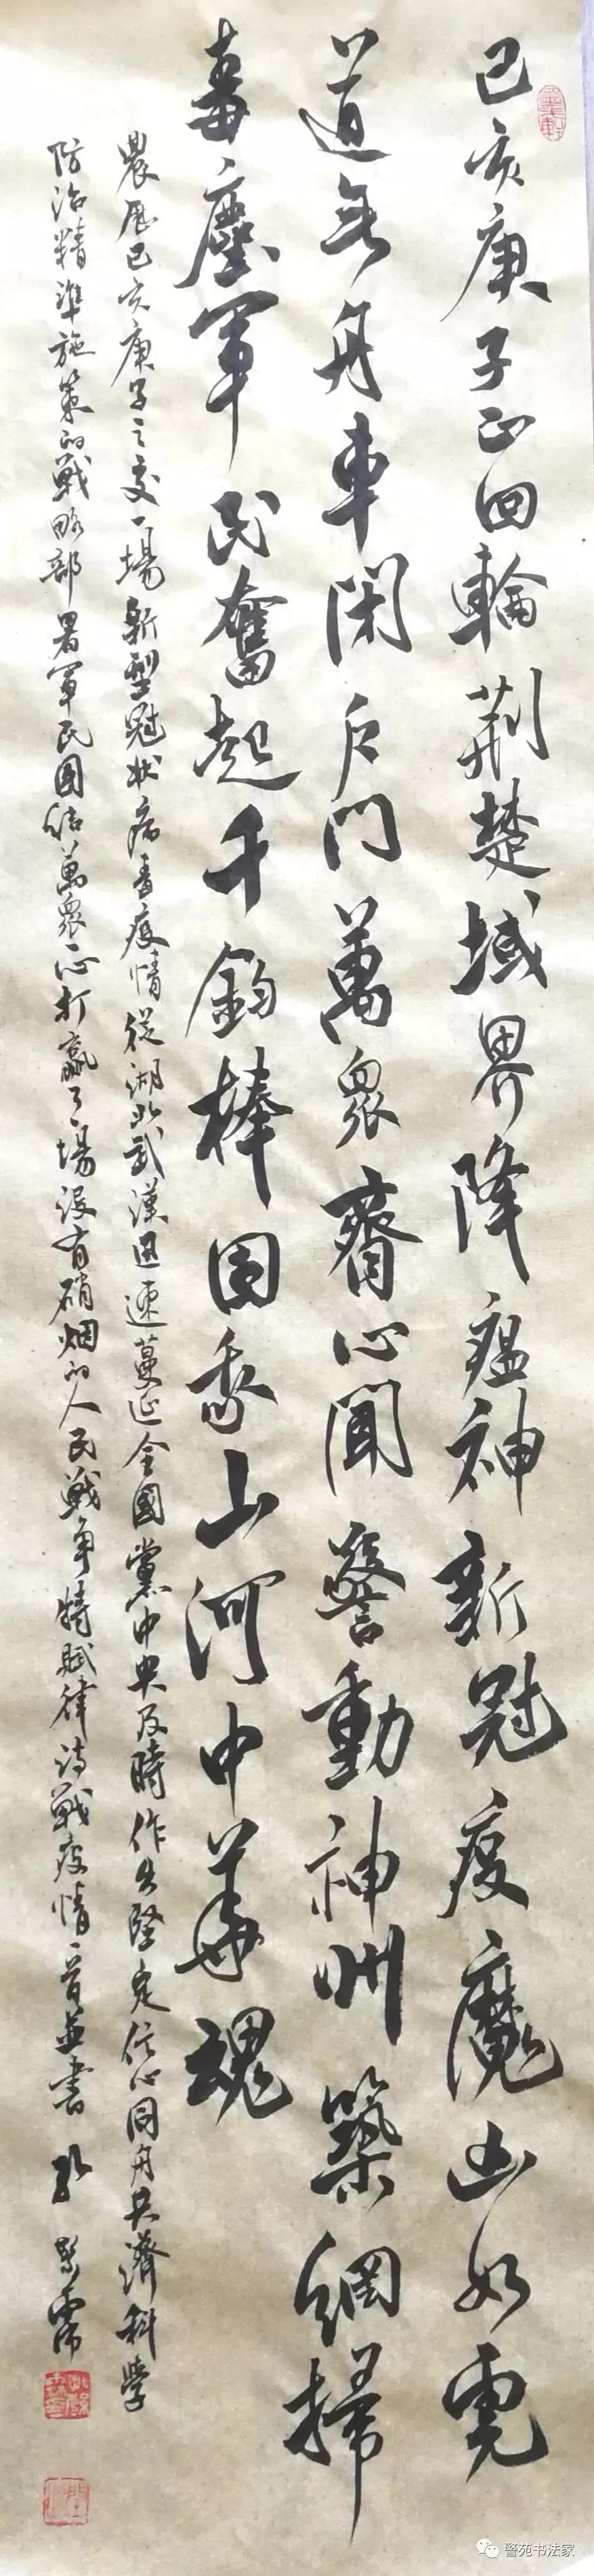 己亥庚子正回輪荆楚域界降瘟神新冠疫魔凶如虎
道無舟車闭户門萬衆齊心聞警動神州築網掃
毒塵軍民奮起千鈞棒固我山河中華魂
農历己亥庚子之交一場新型冠状病毒疫情從湖北武漢迅速蔓延全國黨中央及時作出堅定信心同舟共濟科學
防治精準施策的戰略部署軍民團结萬衆一心打贏了一場没有硝烟的人民戰争特賦律诗戰疫情一首並書
警苑书法家